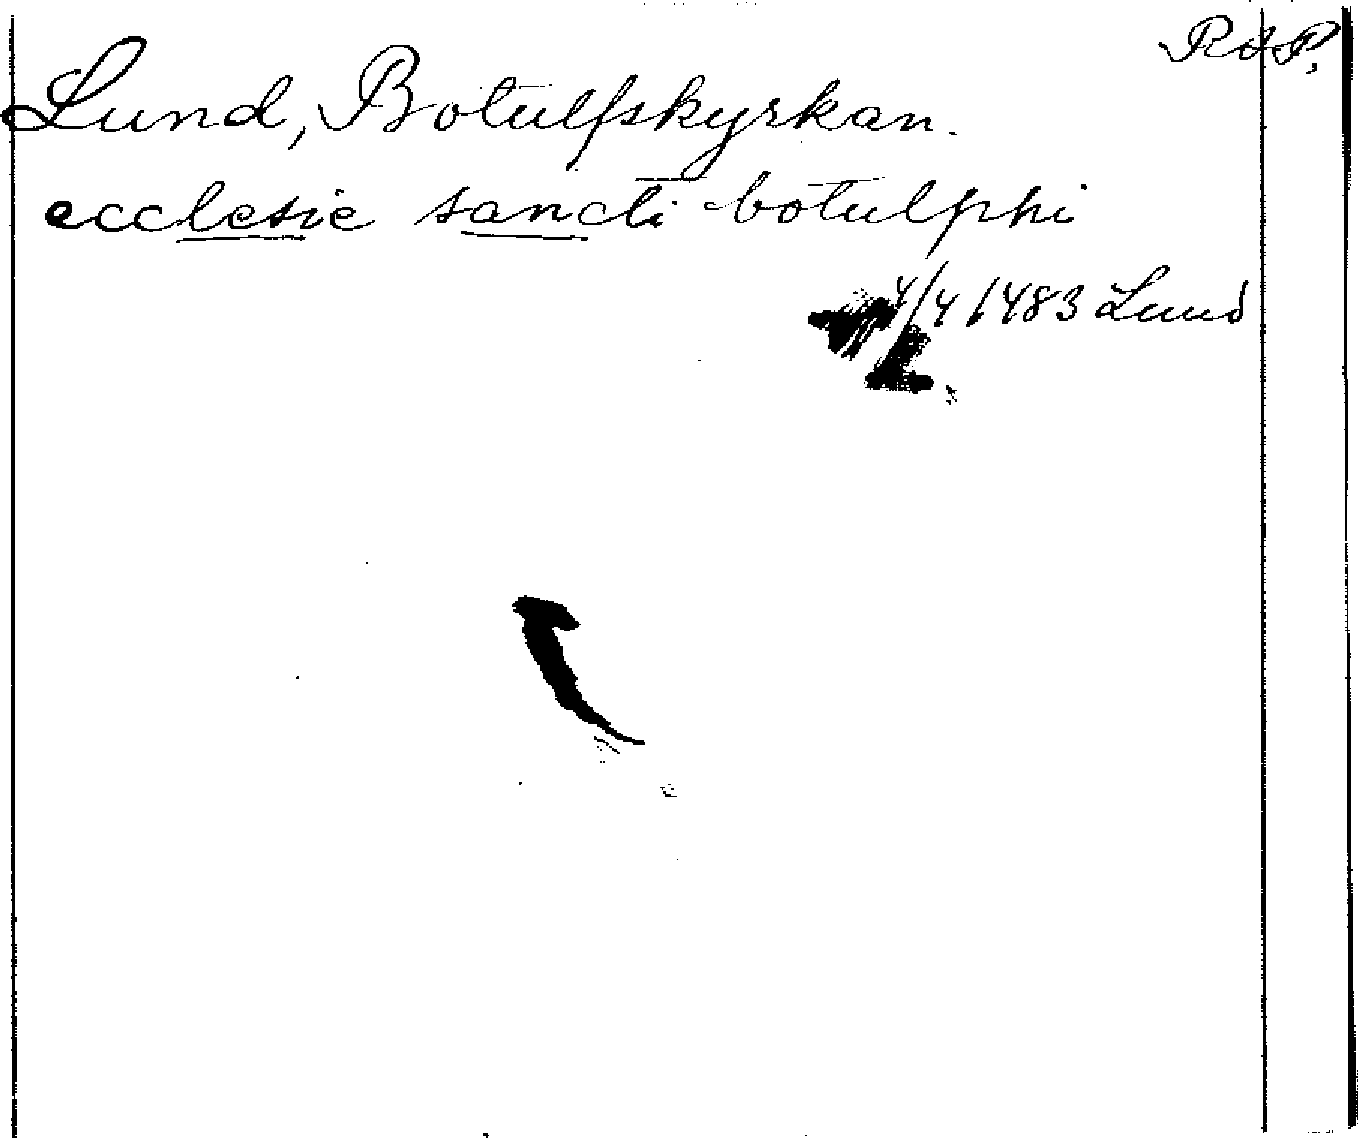 RAP.
Lund, Botulfskyrkan.
ecclesie sancti botulphi
4/4 1483 Lund